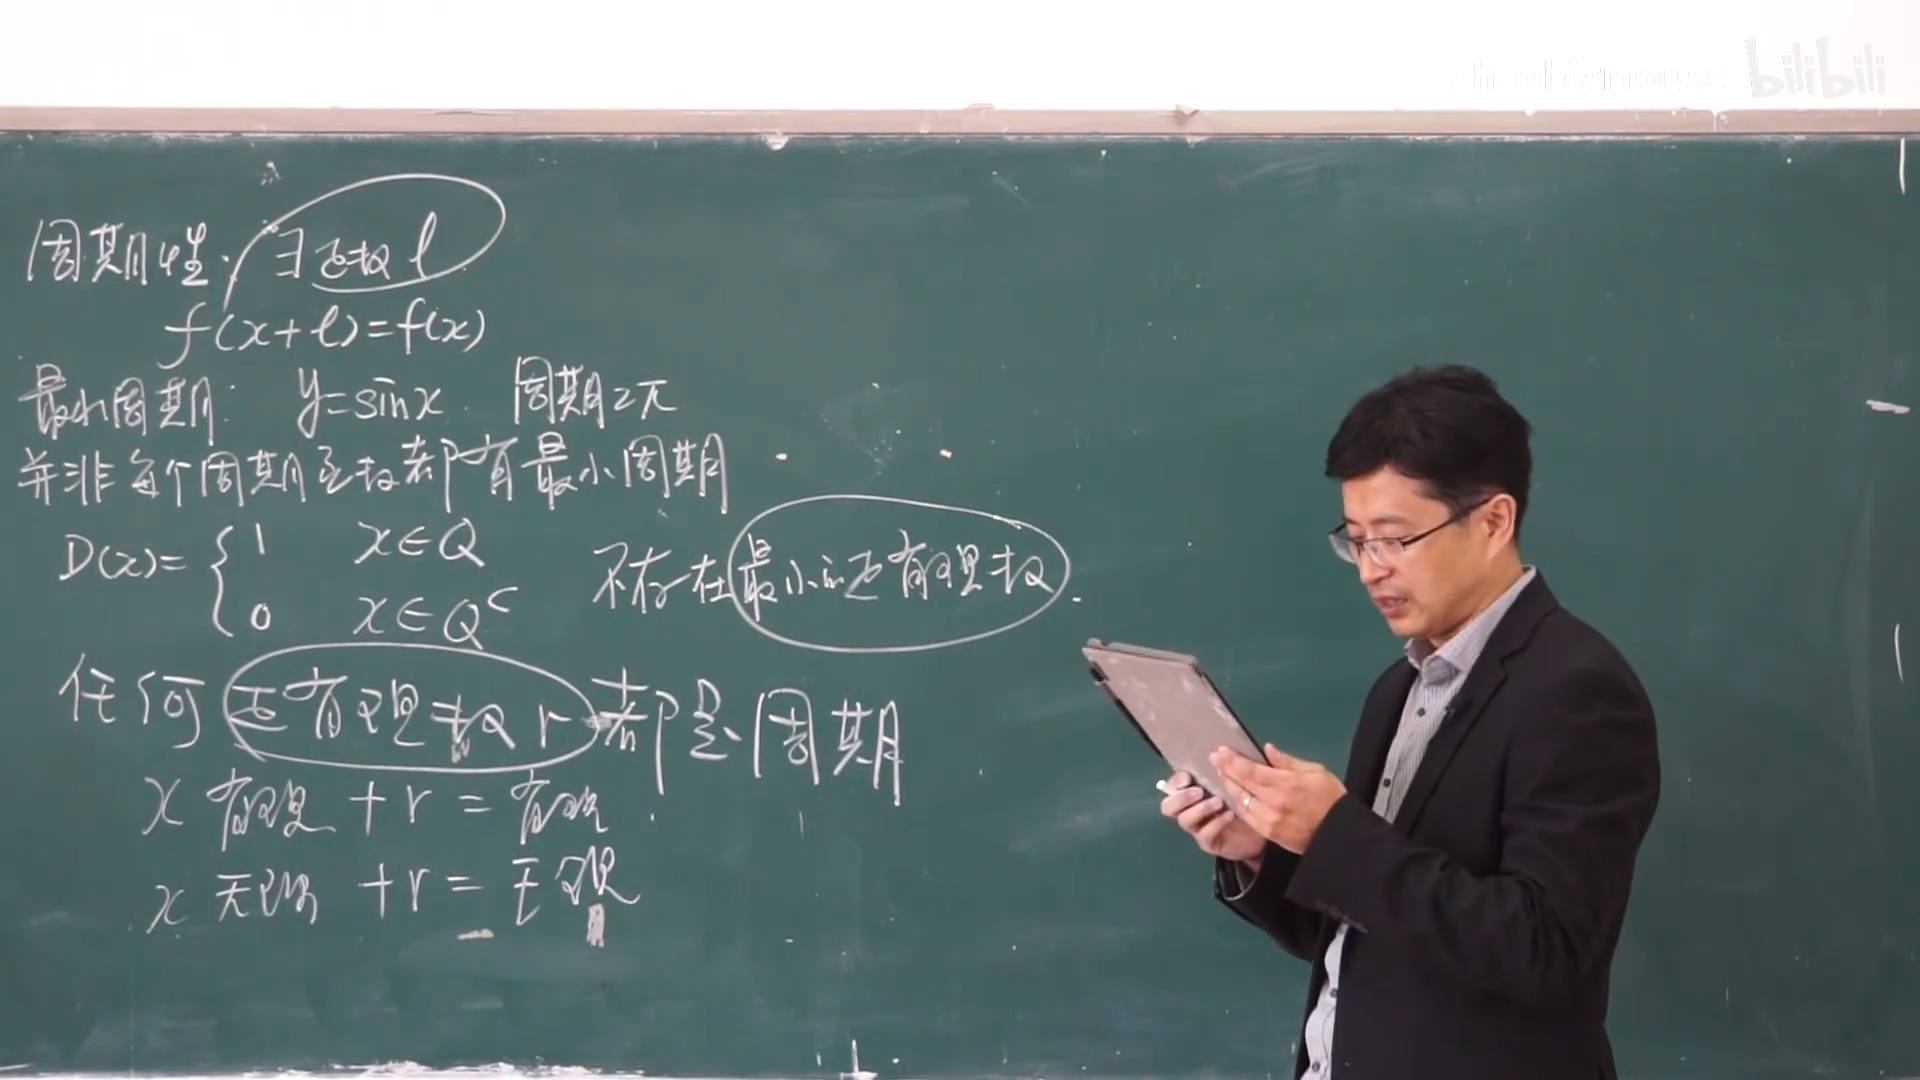 bilibili
周期性. ∃正数 l
f(x+l)=f(x)
最小周期: y=sinx 周期2π
并非每个周期函数都有最小周期
D(x)= { 1 x∈Q
0 x∈Q^c
不存在最小的正有理数.
任何正有理数 r 都是周期
x 有理 + r = 有理.
x 无理 + r = 无理